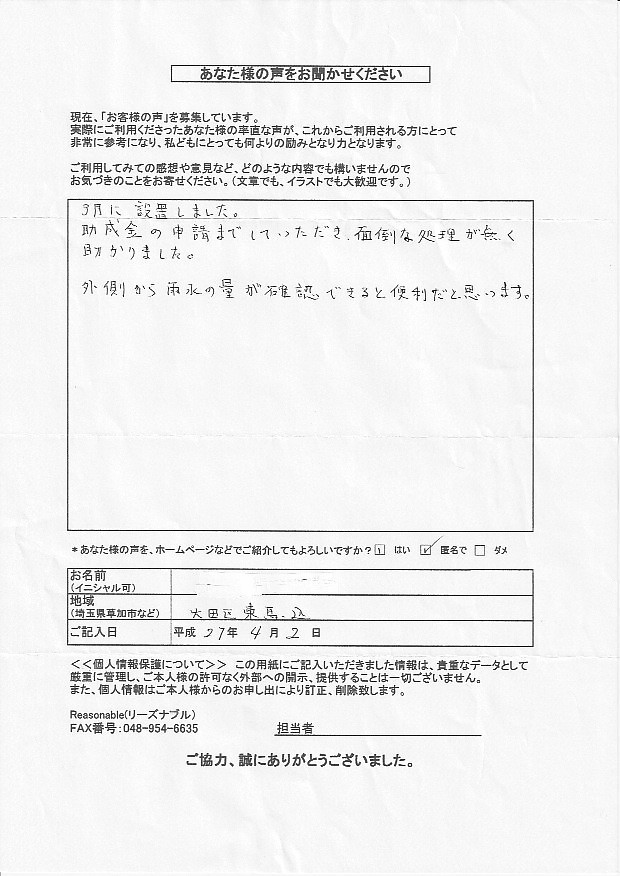 あなた様の声をお聞かせください
現在、「お客様の声」を募集しています。
実際にご利用くださったあなた様の率直な声が、これからご利用される方にとって
非常に参考になり、私どもにとっても何よりの励みとなり力となります。
ご利用してみての感想や意見など、どのような内容でも構いませんので
お気づきのことをお寄せください。(文章でも、イラストでも大歓迎です。)
3月に設置しました。
助成金の申請までしていただき、面倒な処理が無く
助かりました。
外側から雨水の量が確認できると便利だと思います。
*あなた様の声を、ホームページなどでご紹介してもよろしいですか? はい 匿名で ダメ
お名前
(イニシャル可)
地域
(埼玉県草加市など) 大田区東馬込
ご記入日 平成 27年 4月 2日
<<個人情報保護について>> この用紙にご記入いただきました情報は、貴重なデータとして
厳重に管理し、ご本人様の許可なく外部への開示、提供することは一切ございません。
また、個人情報はご本人様からのお申し出により訂正、削除致します。
Reasonable(リーズナブル)
FAX番号:048-954-6635 担当者
ご協力、誠にありがとうございました。